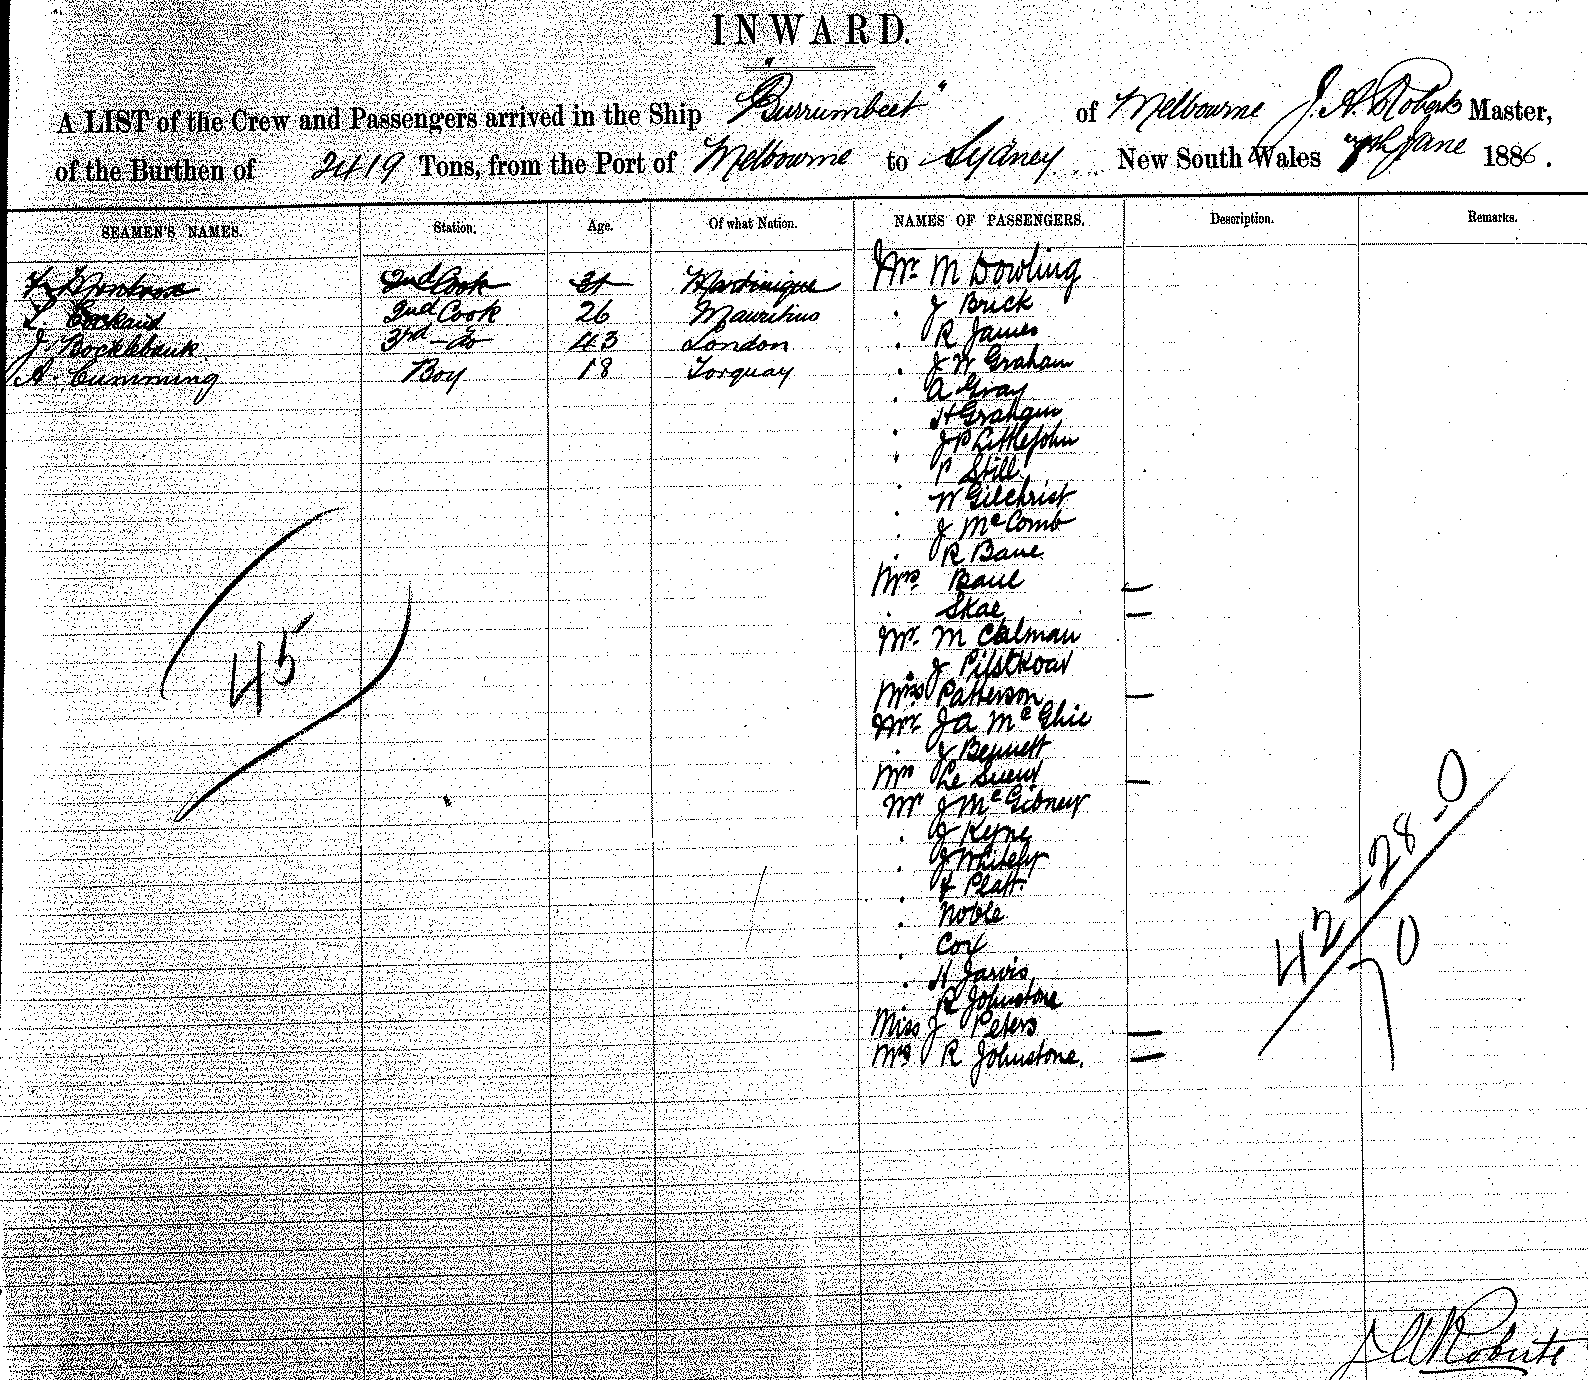 INWARD.
A LIST of the Crew and Passengers arrived in the Ship "Burrumbeet" of Melbourne J. A. Roberts Master,
of the Burthen of 2419 Tons, from the Port of Melbourne to Sydney New South Wales 7th June 1886.
SEAMEN'S NAMES. Station. Age. Of what Nation. NAMES OF PASSENGERS. Description. Remarks.
2nd Cook Martinique Mr. M Dowling
L. 2nd Cook 26 Mauritius . J Brick
J. Bocklebank 3rd - do 43 London . R James
A. Cumming Boy 18 Torquay . J W Graham
. A Gray
. H
. J P Littlejohn
. P Still
. W Gilchrist
. J McComb
. R Bane
Mrs. Bane —
. Skae —
Mr. M Calman
. J
Miss Patterson —
Mr. J A McGhie
. J Bennett
Mrs Le Sueur —
Mr J McGibney
. J Keyne
. J Whitely
. H Platt
. Noble
. Cox
. H Jarvis
R Johnstone
Miss J Peters —
Mrs R Johnstone. —
45
42 - 28 - 0
70
J A Roberts